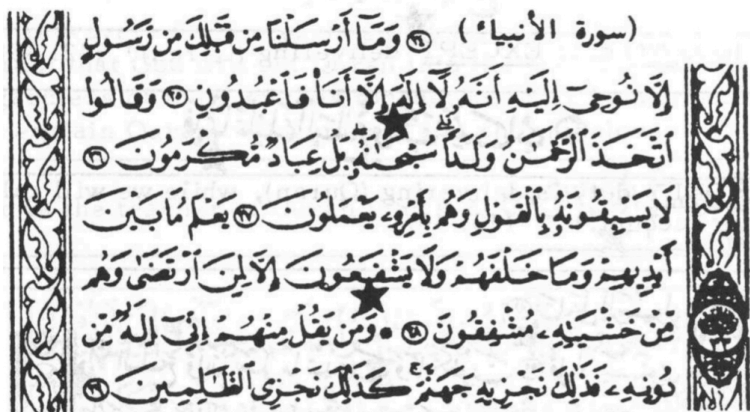 (سورة الأنبياء) ٢٤ وَمَآ أَرْسَلْنَا مِن قَبْلِكَ مِن رَّسُولٍ
إِلَّا نُوحِىٓ إِلَيْهِ أَنَّهُۥ لَآ إِلَٰهَ إِلَّآ أَنَا۠ فَٱعْبُدُونِ ٢٥ وَقَالُوا۟
ٱتَّخَذَ ٱلرَّحْمَٰنُ وَلَدًا ۗ سُبْحَٰنَهُۥ ۚ بَلْ عِبَادٌ مُّكْرَمُونَ ٢٦
لَا يَسْبِقُونَهُۥ بِٱلْقَوْلِ وَهُم بِأَمْرِهِۦ يَعْمَلُونَ ٢٧ يَعْلَمُ مَا بَيْنَ
أَيْدِيهِمْ وَمَا خَلْفَهُمْ وَلَا يَشْفَعُونَ إِلَّا لِمَنِ ٱرْتَضَىٰ وَهُم
مِّنْ خَشْيَتِهِۦ مُشْفِقُونَ ٢٨ * وَمَن يَقُلْ مِنْهُمْ إِنِّىٓ إِلَٰهٌ مِّن
دُونِهِۦ فَذَٰلِكَ نَجْزِيهِ جَهَنَّمَ ۚ كَذَٰلِكَ نَجْزِى ٱلظَّٰلِمِينَ ٢٩